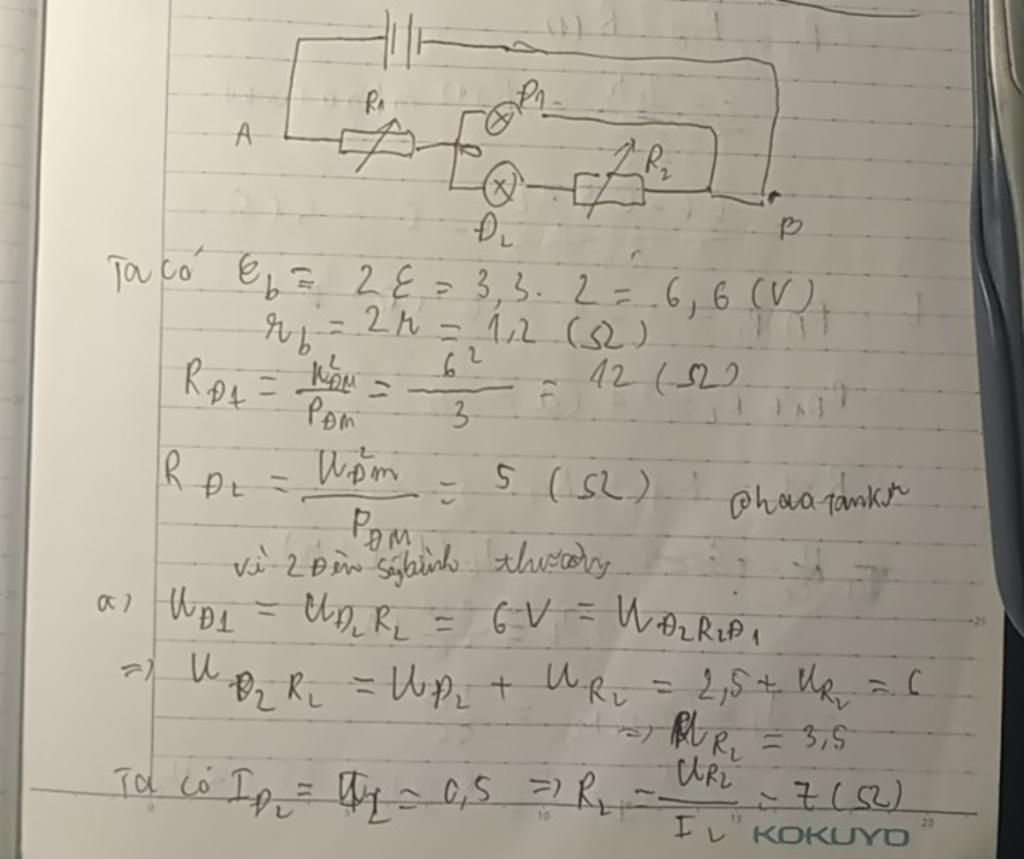 R₁ Đ1
A R₂
Đ₂ B
Ta có ε_b = 2ε = 3,3. 2 = 6,6 (V)
r_b = 2r = 1,2 (Ω)
R_Đ1 = U²_ĐM / P_ĐM = 6² / 3 = 12 (Ω)
R_Đ2 = U²_Đm / P_ĐM = 5 (Ω) @haatanker
vì 2 đèn sáng bình thường
a) U_Đ1 = U_Đ2R2 = 6V = U_Đ2R2Đ1
=) U_Đ2R2 = U_Đ2 + U_R2 = 2,5 + U_R2 = 6
=) U_R2 = 3,5
Ta có I_Đ2 = I_2 = 0,5 =) R₂ = U_R2 / I_2 = 7 (Ω)
KOKUYO